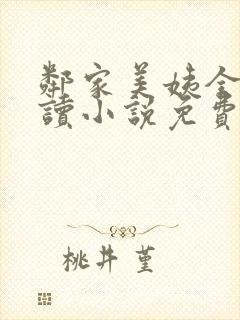 鄰家美姨全
讀小說免費
桃井 堇